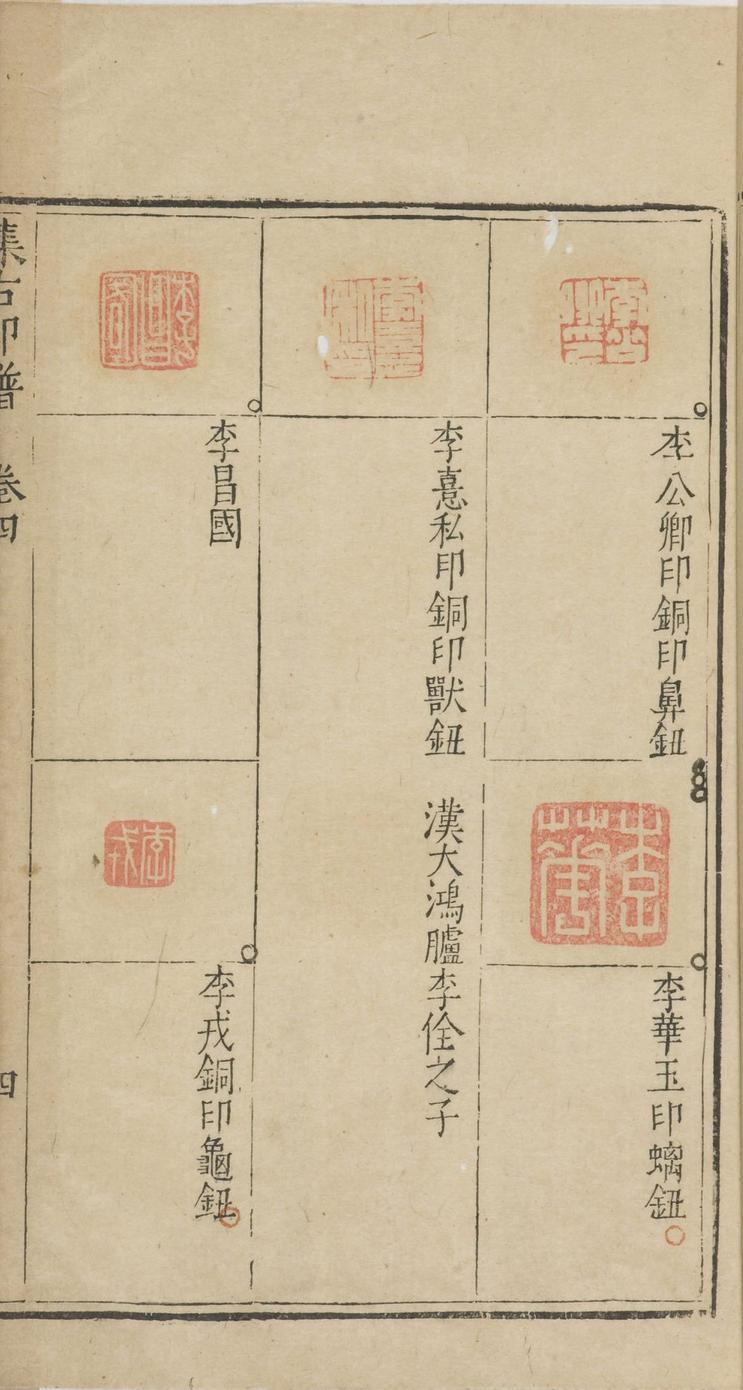 李公卿印銅印鼻鈕
李華玉印螭鈕
李憙私印銅印獸鈕
漢大鴻臚李佺之子
李昌國
李戎銅印龜鈕
集古印譜 卷四
四